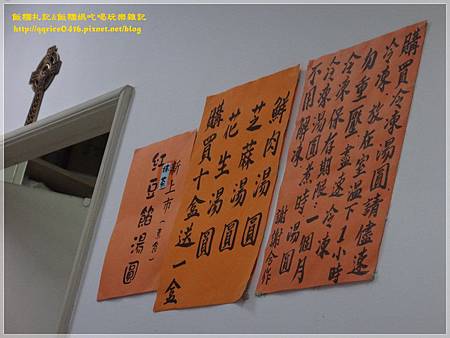 飯糰札記&飯糰媽吃喝玩樂雜記
http://qqrice0416.pixnet.net/blog
購買冷凍湯圓請儘速
冷凍放在室溫下1小時
勿重壓盡速冷凍
冷凍保存期限:一個月
冷凍湯圓煮時湯圓
不用解凍 謝謝合作
鮮肉湯圓
芝蔴湯圓
花生湯圓
購買十盒送一盒
新上市(素食)
抹茶
紅豆餡湯圓